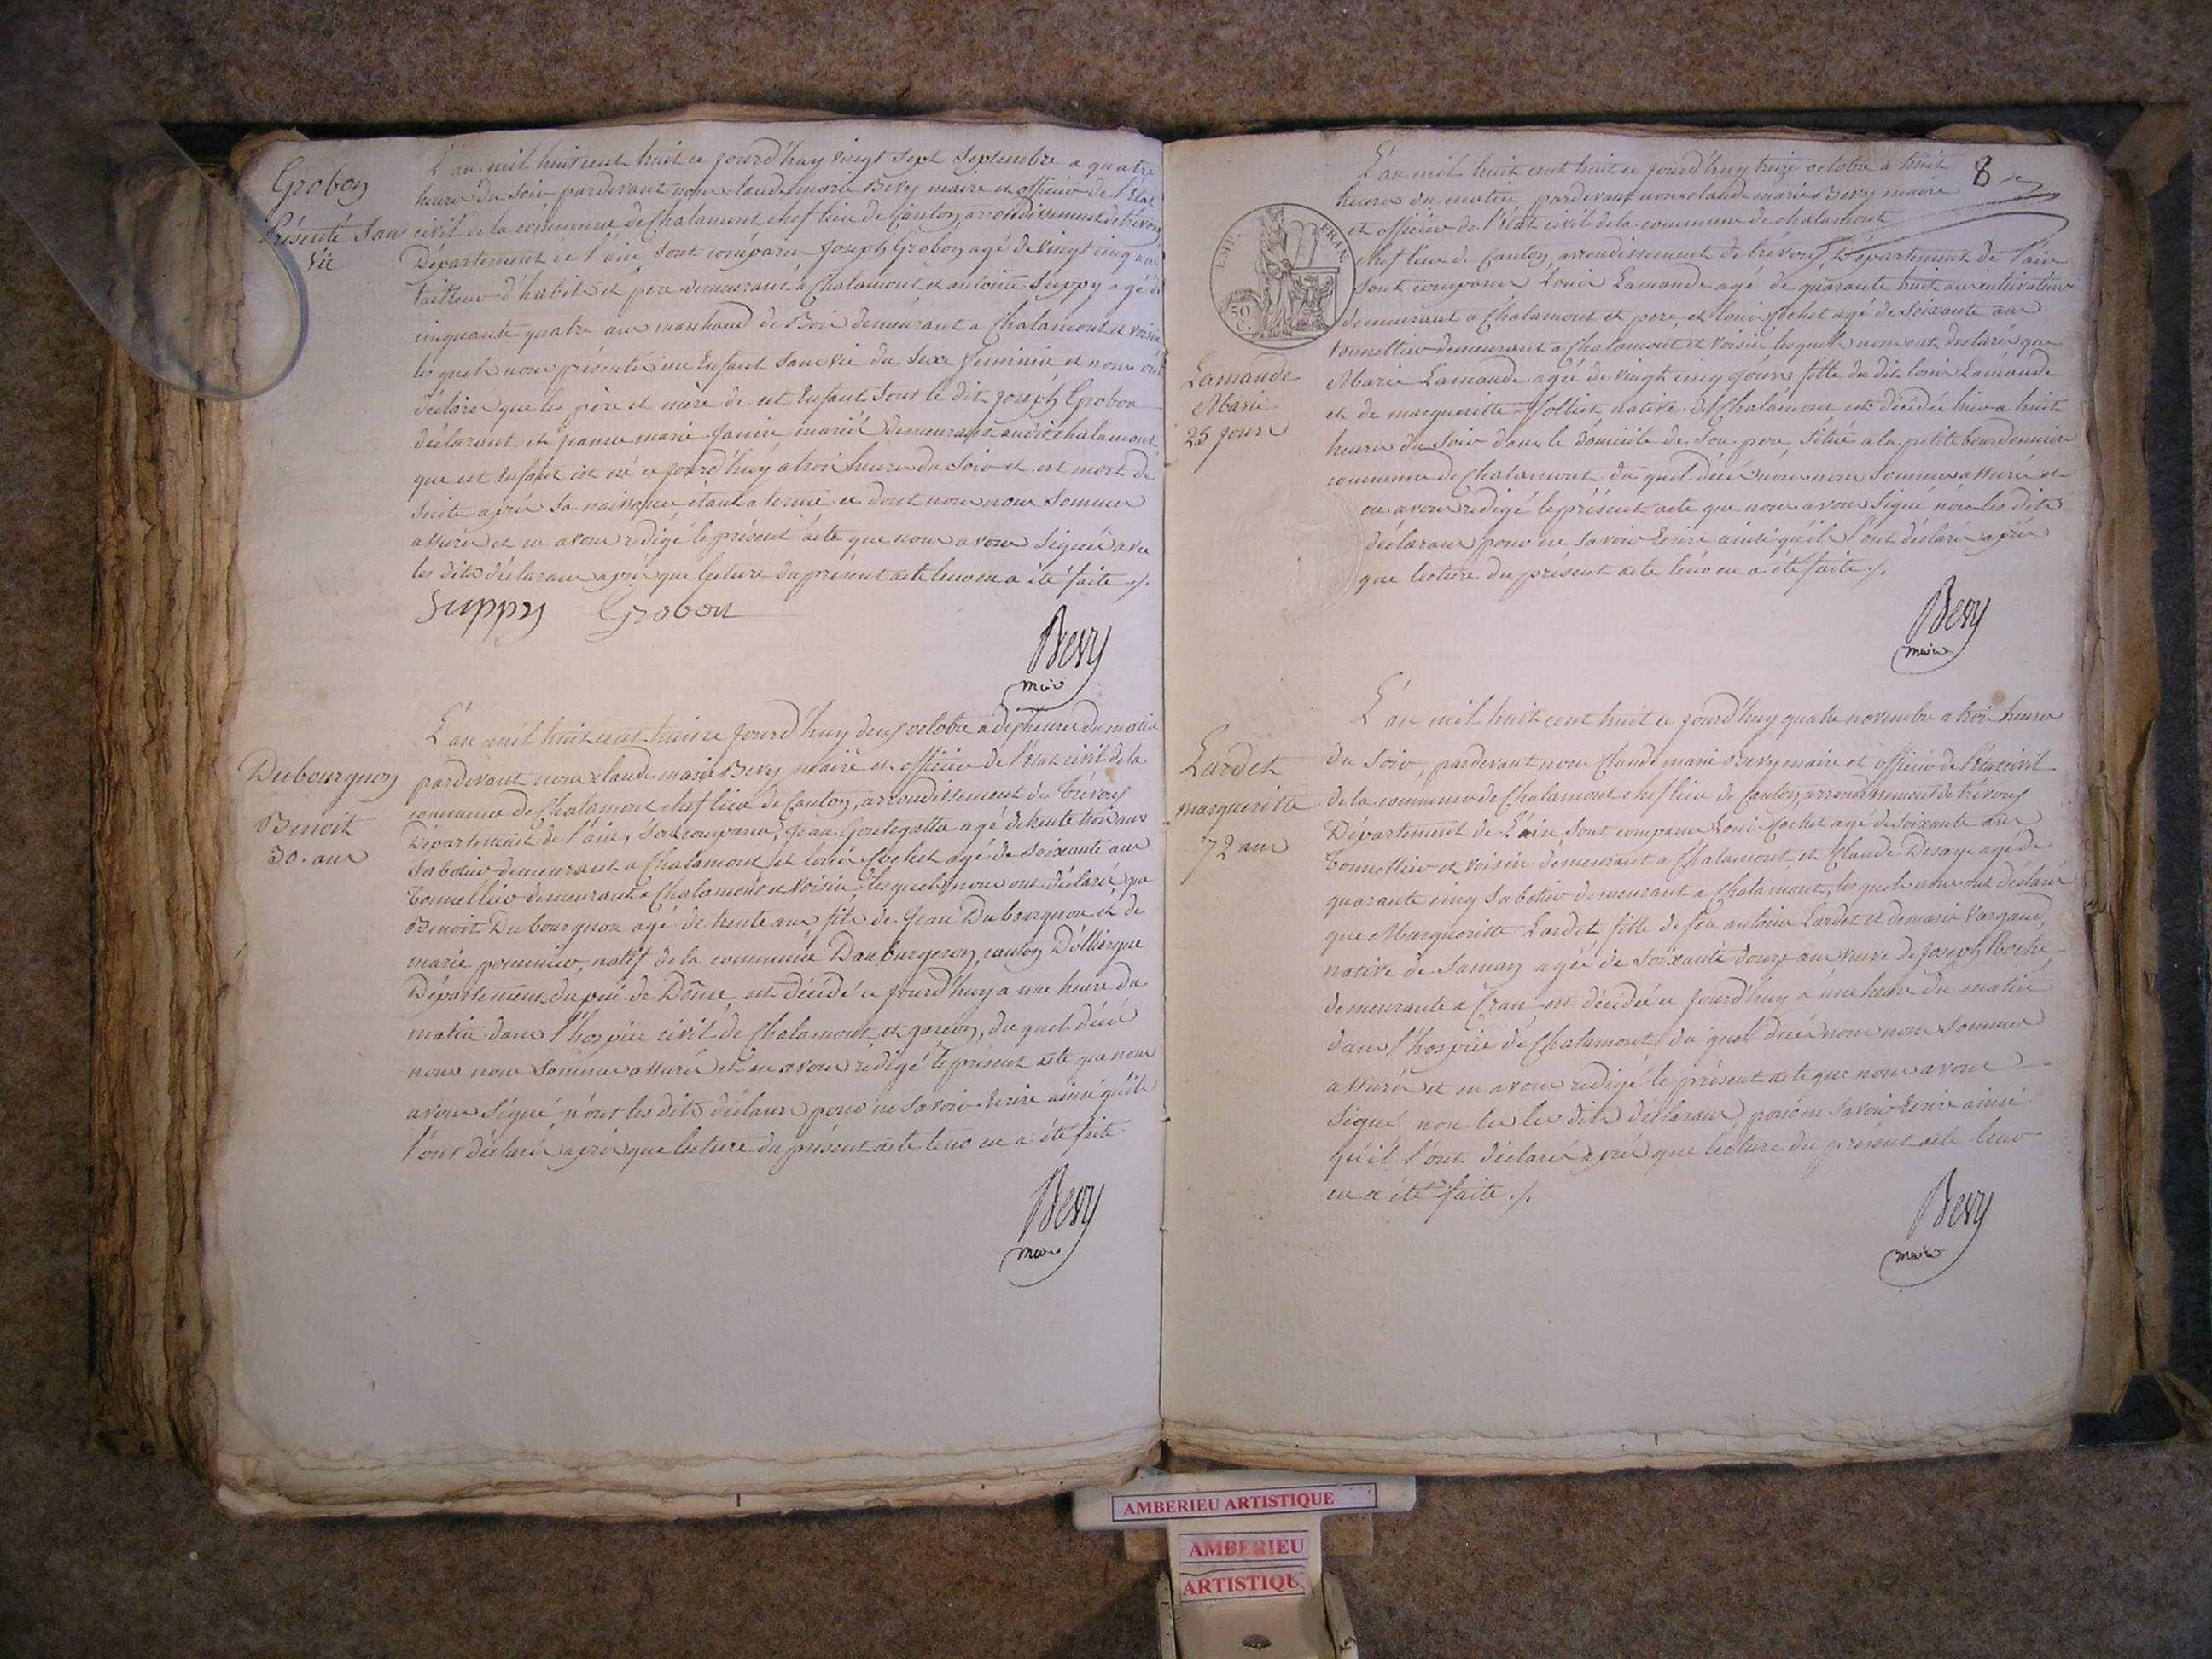 Grobon
Présenté Sans
Vie
L'an mil huit cent huit ce jourd'huy vingt sept Septembre a quatre
heures du Soir, pardevant nous claude marie Bevy maire et officier de l'Etat
civil de la commune de Chalamont chef lieu de Canton, arrondissement de trévoux
Département de l'ain Sont comparus Joseph Grobon agé de vingt cinq ans
tailleur d'habits et père demeurant à Chalamont et antoine Suppy agé de
cinquante quatre ans marchand de Bois demeurant a Chalamont et voisin
les quels nous présenté un Enfant Sans vie du Sexe feminin et nous ont
déclaré que les père et mère de cet Enfant Sont le dit joseph Grobon
déclarant et jeanne marie mariés demeurant audit chalamont
que cet Enfant est né ce jourd'huy a trois heures du Soir et est mort de
Suite après Sa naissance étant a terme ce dont nous nous Sommes
assurés et en avons rédigé le présent acte que nous avons Signés avec
les dits déclarans après que lecture du présent acte leur en a été faite ./.
Suppy Grobon
Bevy
maire
Dubourgnon
Benoit
30. ans
L'an mil huit cent huit ce jourd'huy deux octobre a dix heures du matin
pardevant nous claude marie Bevy maire et officier de l'Etat civil de la
commune de Chalamont chef lieu de Canton, arrondissement de Trévoux
Département de l'ain, Sont comparus, Jean agé de trente trois ans
Sabotier demeurant a Chalamont et Louis Cochet agé de Soixante ans
Tonnellier demeurant a Chalamont et voisins, les quels nous ont déclaré que
Benoit Dubourgnon agé de trente ans, fils de Jean Dubourgnon et de
marie natif de la commune canton D'olliergue
Département du puié de Dôme, est décédé ce jourd'huy a une heure du
matin dans l'hospice civil de Chalamont et garçon, du quel décé
nous nous Sommes assurés et en avons rédigé le présent acte que nous
avons Signé n'ont les dits déclarans pour ne Savoir Ecrire ainsi qu'ils
l'ont déclaré après que lecture du présent acte leur en a été faite.
Bevy
maire
8
L'an mil huit cent huit ce jourd'huy treize octobre à huit
heures du matin, pardevant nous claude marie Bevy maire
et officier de l'état civil de la commune de chalamont
chef lieu de Canton, arrondissement de trévoux Département de l'ain
Sont comparus Louis Lamande agé de quarante huit ans cultivateur
demeurant a Chalamont et pere, et louis Cochet agé de Soixante ans
tonnellier demeurant a Chalamont et voisin lesquels nous ont déclaré que
Marie Lamande agée de vingt cinq jours fille du dit louis Lamande
et de margueritte native de Chalamont est décédée hier a huit
heures du Soir dans le Domicile de Son pere, Situé a la petite
commune de Chalamont du quel décé nous nous Sommes assurés et
en avons redigé le présent acte que nous avons Signé non les dits
déclarans pour ne Savoir Ecrire ainsi qu'ils l'ont déclaré après
que lecture du présent acte leur en a été faite ./.
EMP. FRAN.
50
C.
Lamande
Marie
25 jours
Bevy
maire
Lardet
margueritte
72 ans
L'an mil huit cent huit ce jourd'huy quatre novembre a trois heures
du Soir, pardevant nous Claude marie Bevy maire et officier de l'état civil
de la commune de Chalamont chef lieu de Canton, arrondissement de trévoux
Département de L'ain Sont comparus Louis Cochet agé de Soixante ans
Tonnellier et voisin demeurant a Chalamont, et Claude agé de
quarante cinq Sabotier demeurant a Chalamont, les quels nous ont déclaré
que Margueritte Lardet fille de feu antoine Lardet et de marie
native de agée de Soixante douze ans veuve de joseph Roche
demeurante a Cran est décédée ce jourd'huy a une heure du matin
dans l'hospice de Chalamont du quel décé nous nous Sommes
assurés et en avons redigé le présent acte que nous avons
Signé non les les dits déclarans pour ne Savoir Ecrire ainsi
qu'ils l'ont déclaré après que lecture du présent acte leur
en a été faite ./.
Bevy
maire
AMBERIEU ARTISTIQUE
AMBERIEU
ARTISTIQUE